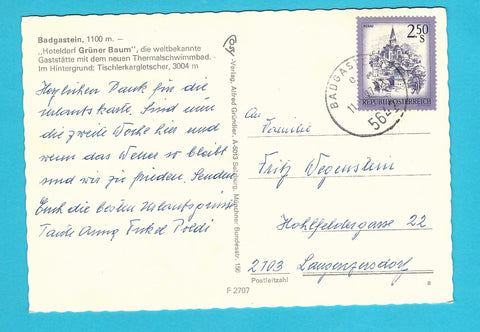 Badgastein, 1100 m. —
„Hoteldorf Grüner Baum", die weltbekannte
Gaststätte mit dem neuen Thermalschwimmbad. -
Im Hintergrund: Tischlerkargletscher, 3004 m
Herzlichen Dank für die
Urlaubskarte. Sind nun
die zweite Woche hier und
wenn das Wetter so bleibt
sind wir zu frieden. Senden
Euch die besten Urlaubsgrüße
Tante Anny Onkel Poldi
Cosy-Verlag, Alfred Gründler, A-5013 Salzburg, Münchner Bundesstr. 156
F 2707
2.50
S
REPUBLIK ÖSTERREICH
BADGAST
564
An
Familie
Fritz Wegenstein
Hohlfeldergasse 22
2103 Langenzersdorf
Postleitzahl